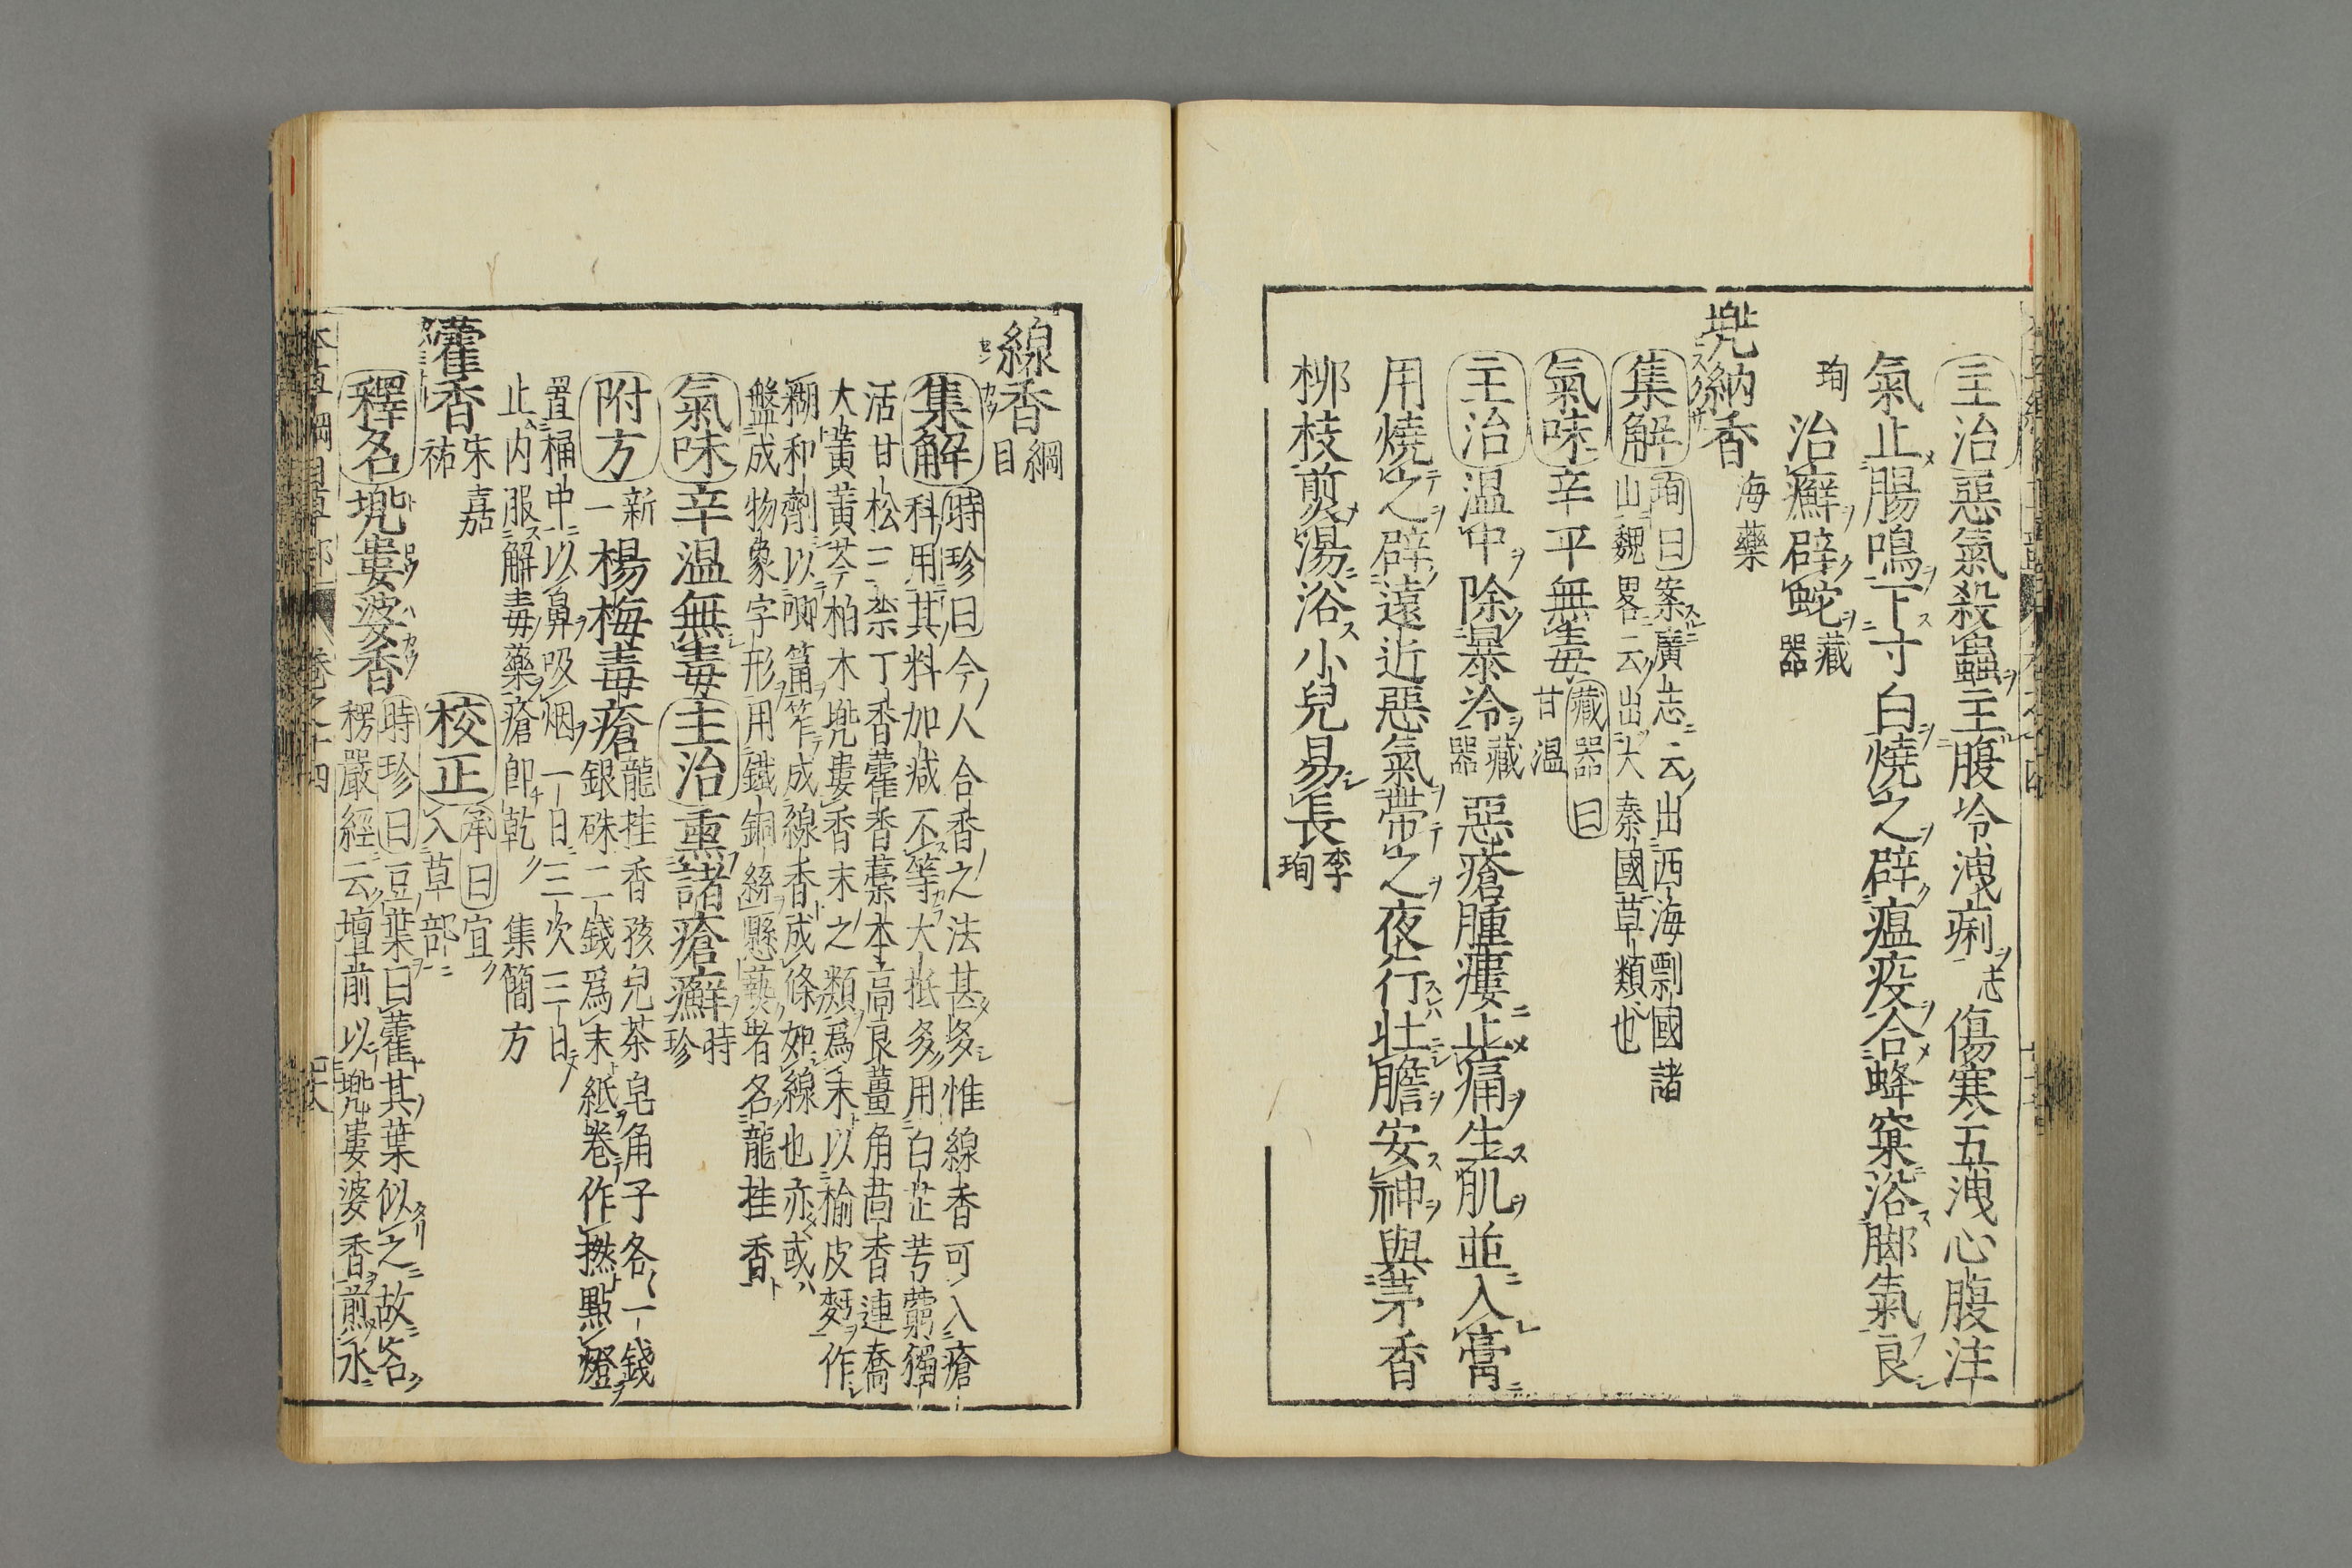 主治惡氣殺蟲主腹冷洩痢志傷寒五洩心腹注
氣止腸鳴下寸白燒之辟瘟疫合蜂窠浴脚氣良
珣治癬辟蛇藏器
兠納香海藥
集解珣曰案廣志云出西海剽國諸
山魏畧云出大秦國草類也
氣味辛平無毒藏器曰
甘溫
主治溫中除暴冷藏器惡瘡腫瘻止痛生肌並入膏
用燒之辟遠近惡氣帶之夜行壯膽安神與茅香
桺枝煎湯浴小兒易長李珣
線香綱目
集解時珍曰今人合香之法甚多惟線香可入瘡
科用其料加減不等大抵多用白芷芎藭獨
活甘松三柰丁香藿香藁本高良薑角茴香連喬
大黃黃芩柏木兠婁香末之類爲末以榆皮麪作
糊和劑以唧筩笮成線香成條如線也亦或
盤成物象字形用鐵銅絲懸爇者名龍挂香
氣味辛溫無毒主治熏諸瘡癬時珍
附方新一楊梅毒瘡龍挂香孩兒茶皂角子各一錢
銀硃二錢爲末紙卷作撚點燈
置桶中以鼻吸烟一日三次三日
止内服解毒藥瘡卽乾集簡方
藿香宋嘉祐校正承曰宜
入草部
釋名兠婁婆香時珍曰豆葉曰藿其葉似之故名
楞嚴經云壇前以兠婁婆香煎水
本草綱目草部 卷之十四